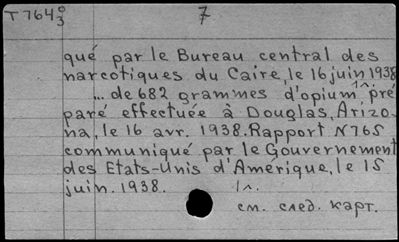 T764⁰₃ 7
qué par le Bureau central des
narcotiques du Caire, le 16 juin 1938
... de 682 grammes d'opium pré
paré effectuée à Douglas, Arizo-
na, le 16 avr. 1938. Rapport N765
communiqué par le Gouvernement
des Etats-Unis d'Amérique, le 15
juin. 1938. 1л.
см. след. карт.